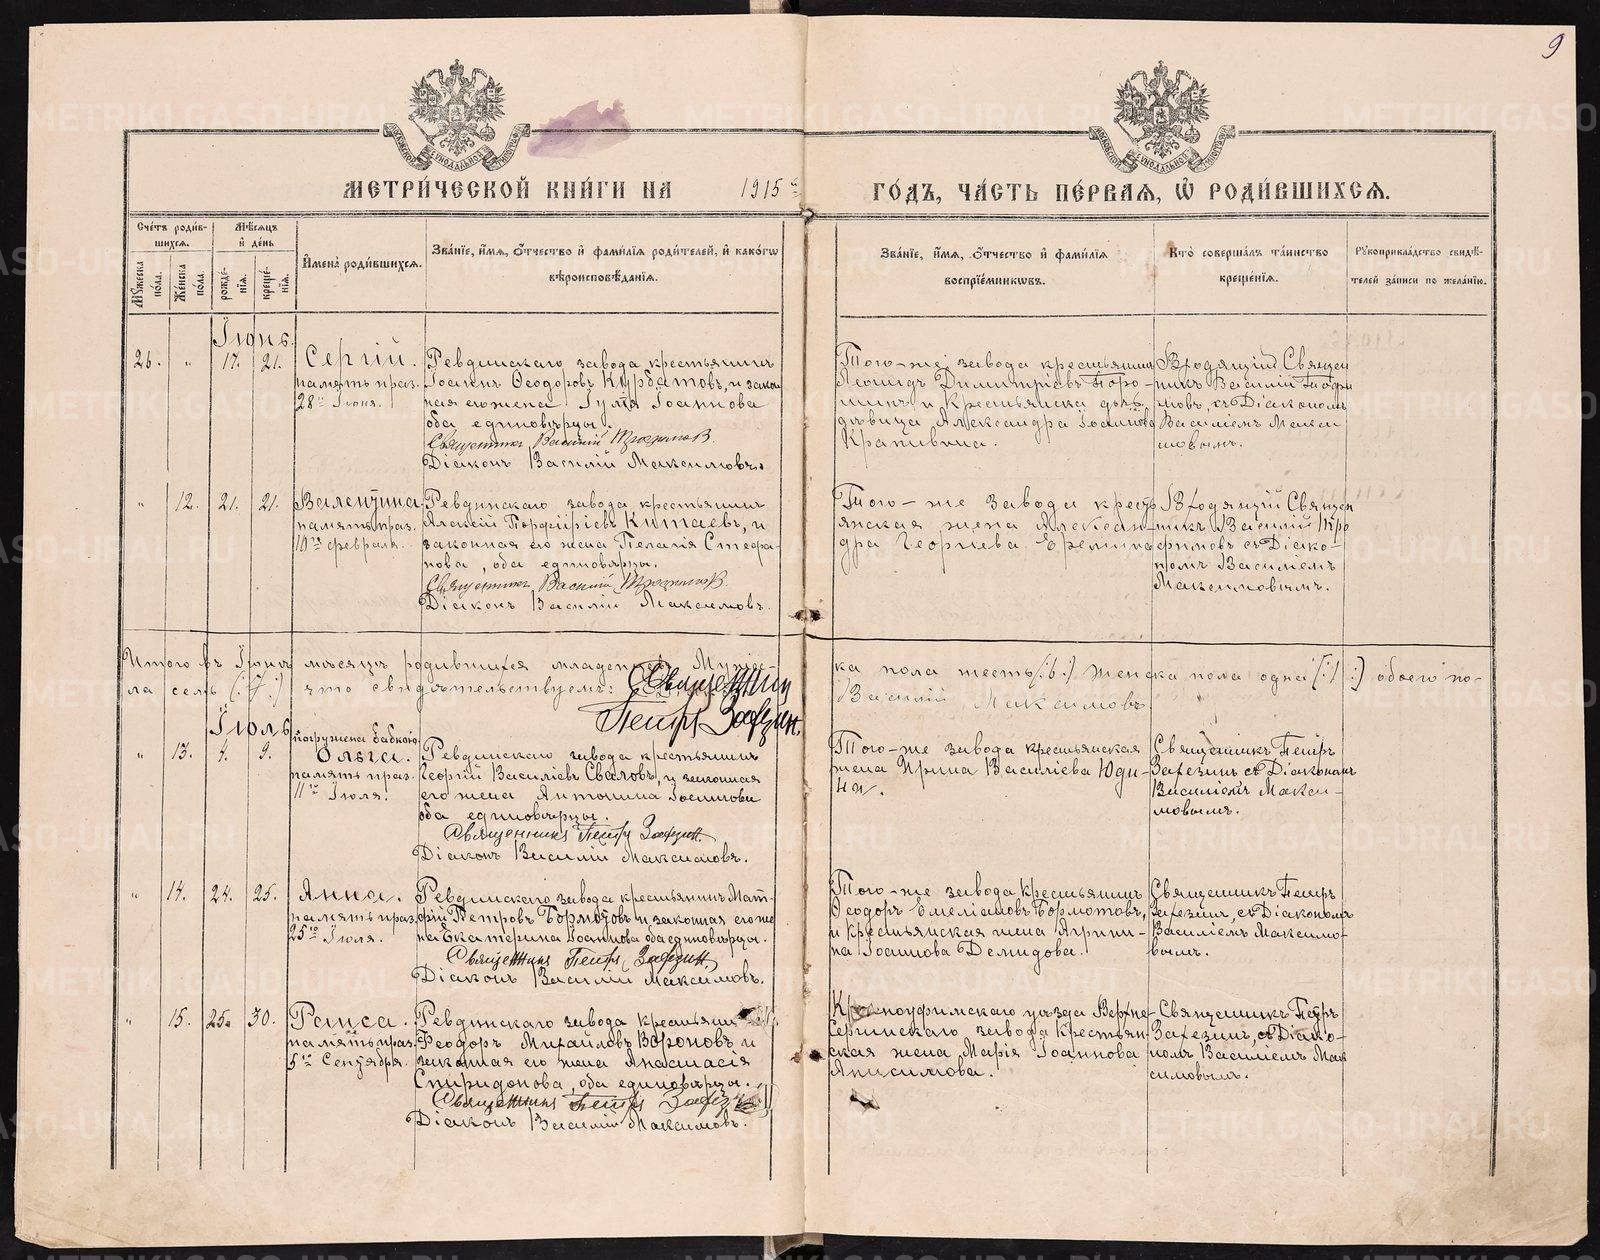 9
МЕТРИ́ЧЕСКОЙ КНИ́ГИ НА 1915 ГО́ДЪ, ЧА́СТЬ ПЕ́РВАЯ, Ѿ РОДИ́ВШИХСЯ.
Сче́тъ роди́в-
шихся.
Мѣ́сяцъ
и҆ де́нь
Му́жеска
по́ла.
Же́нска
по́ла.
рожде́-
нїя.
креще́-
нїя.
И҆мена̀ роди́вшихся.
Зва́нїе, и҆́мя, ѻ҆́тчество и҆ фами́лїя роди́телей, и҆ како́гѡ
вѣроисповѣ́данїя.
Зва́нїе, и҆́мя, ѻ҆́тчество и҆ фами́лїя
воспрїе́мникѡвъ.
Кто̀ соверша́лъ та́инство
креще́нїя.
Рꙋкоприкла́дство свидѣ́-
телей за́писи по жела́нїю.
Іюнь.
26. " 17. 21. Сергій.
память праз.
28го Іюня.
Ревдинскаго завода крестьянинъ
Іоаннъ Ѳеодоровъ Курбатовъ, и закон
ная его жена Іоаннова
оба единовѣрцы.
Священникъ Василій Трофимов
Діаконъ Василій Максимовъ.
Того-же завода крестьянинъ
Леонидъ Димитріевъ
и Крестьянска дочь
дѣвица Александра Іоаннова
Крапивина.
Входящій Священ
никъ Василій Трофи
мовъ, съ Діакономъ
Василіемъ Макси
мовымъ.
" 12. 21. 21. Валентина
память праз.
10го февраля.
Ревдинскаго завода крестьянинъ
Алексій Порфиріевъ Китаевъ, и
законная его жена Пелагія Стефа
нова, оба единовѣрцы.
Священникъ Василій Трофимов
Діаконъ Василій Максимовъ.
Того-же завода крест
янская жена Алексан-
дра Георгіева Еремина
Входящій Священ
никъ Василій Тро
фимовъ съ Діако-
номъ Василіемъ
Максимовымъ.
Итого въ Іюнѣ мѣсяцѣ родившихся младенцевъ Мужес-
ка пола шесть (:6:) Женска пола одна (:1:) обоего по-
ла семь (:7:) что свидѣтельствуемъ: Священник
Петръ Заѳзин.
Василій Максимовъ.
Іюль
" 13. 4. 9. погружена бабкою.
Ольга.
память праз.
11го Іюля.
Ревдинскаго завода крестьянинъ
Георгій Василіевъ Сваловъ, и законная
его жена Антонина Іоаннова
оба единовѣрцы.
Священникъ Петръ
Діаконъ Василій Максимовъ.
Того-же завода крестьянская
жена Ирина Василіева Юди-
на.
Священникъ Петръ
съ Діакономъ
Василіемъ Макси-
мовымъ.
" 14. 24. 25. Анна.
память праз.
25го Іюля.
Ревдинскаго завода крестьянинъ Мат-
Петровъ Бормотовъ и законная его же
на Екатерина Іоаннова оба единовѣрцы.
Священникъ Петръ
Діаконъ Василій Максимовъ.
Того-же завода крестьянинъ
Ѳеодоръ Емеліановъ Бормотовъ,
и крестьянская жена Агрипи-
на Іоаннова Демидова.
Священникъ Петръ
съ Діакономъ
Василіемъ Максимо-
вымъ.
" 15. 25. 30. Раиса.
память праз.
5го Сентября.
Ревдинскаго завода крестьянин
Ѳеодоръ Михайловъ Вороновъ и
законная его жена Анастасія
Спиридонова, оба единовѣрцы.
Священникъ Петръ
Діаконъ Василій Максимовъ.
Красноуфимскаго уѣзда Верхне
Сергинскаго завода крестьян
ская жена Марія Іоаннова
Анисимова.
Священникъ Петръ
съ Діако-
номъ Василіемъ Мак
симовымъ.
METRIKI.GASO-URAL.RU